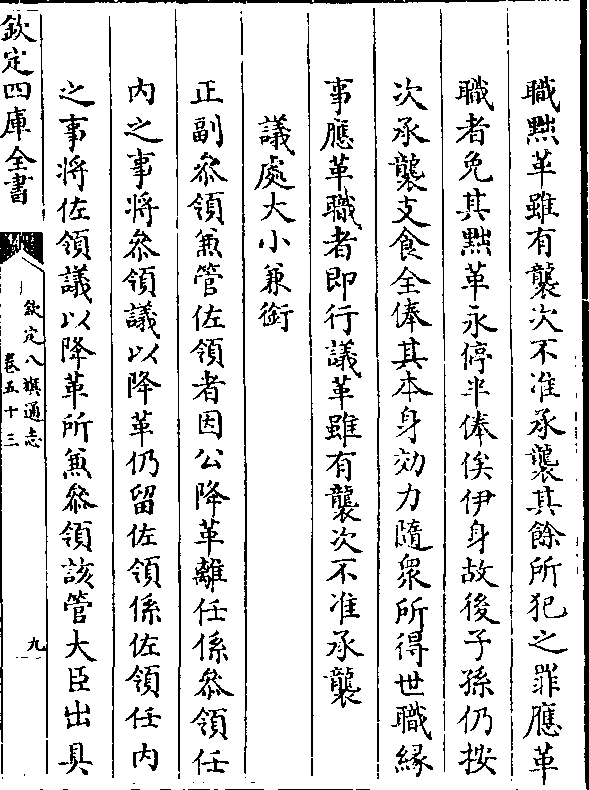 職黜革雖有襲次不准承襲其餘所犯之罪應革
職者免其黜革永停半俸俟伊身故後子孫仍按
次承襲支食全俸其本身効力隨衆所得世職緣
事應革職者即行議革雖有襲次不准承襲
議處大小兼銜
正副叅領兼管佐領者因公降革離任係叅領任
内之事將叅領議以降革仍留佐領係佐領任内
之事將佐領議以降革所兼叅領該管大臣出具
欽定四庫全書
欽定八旗通志
卷五十三
九